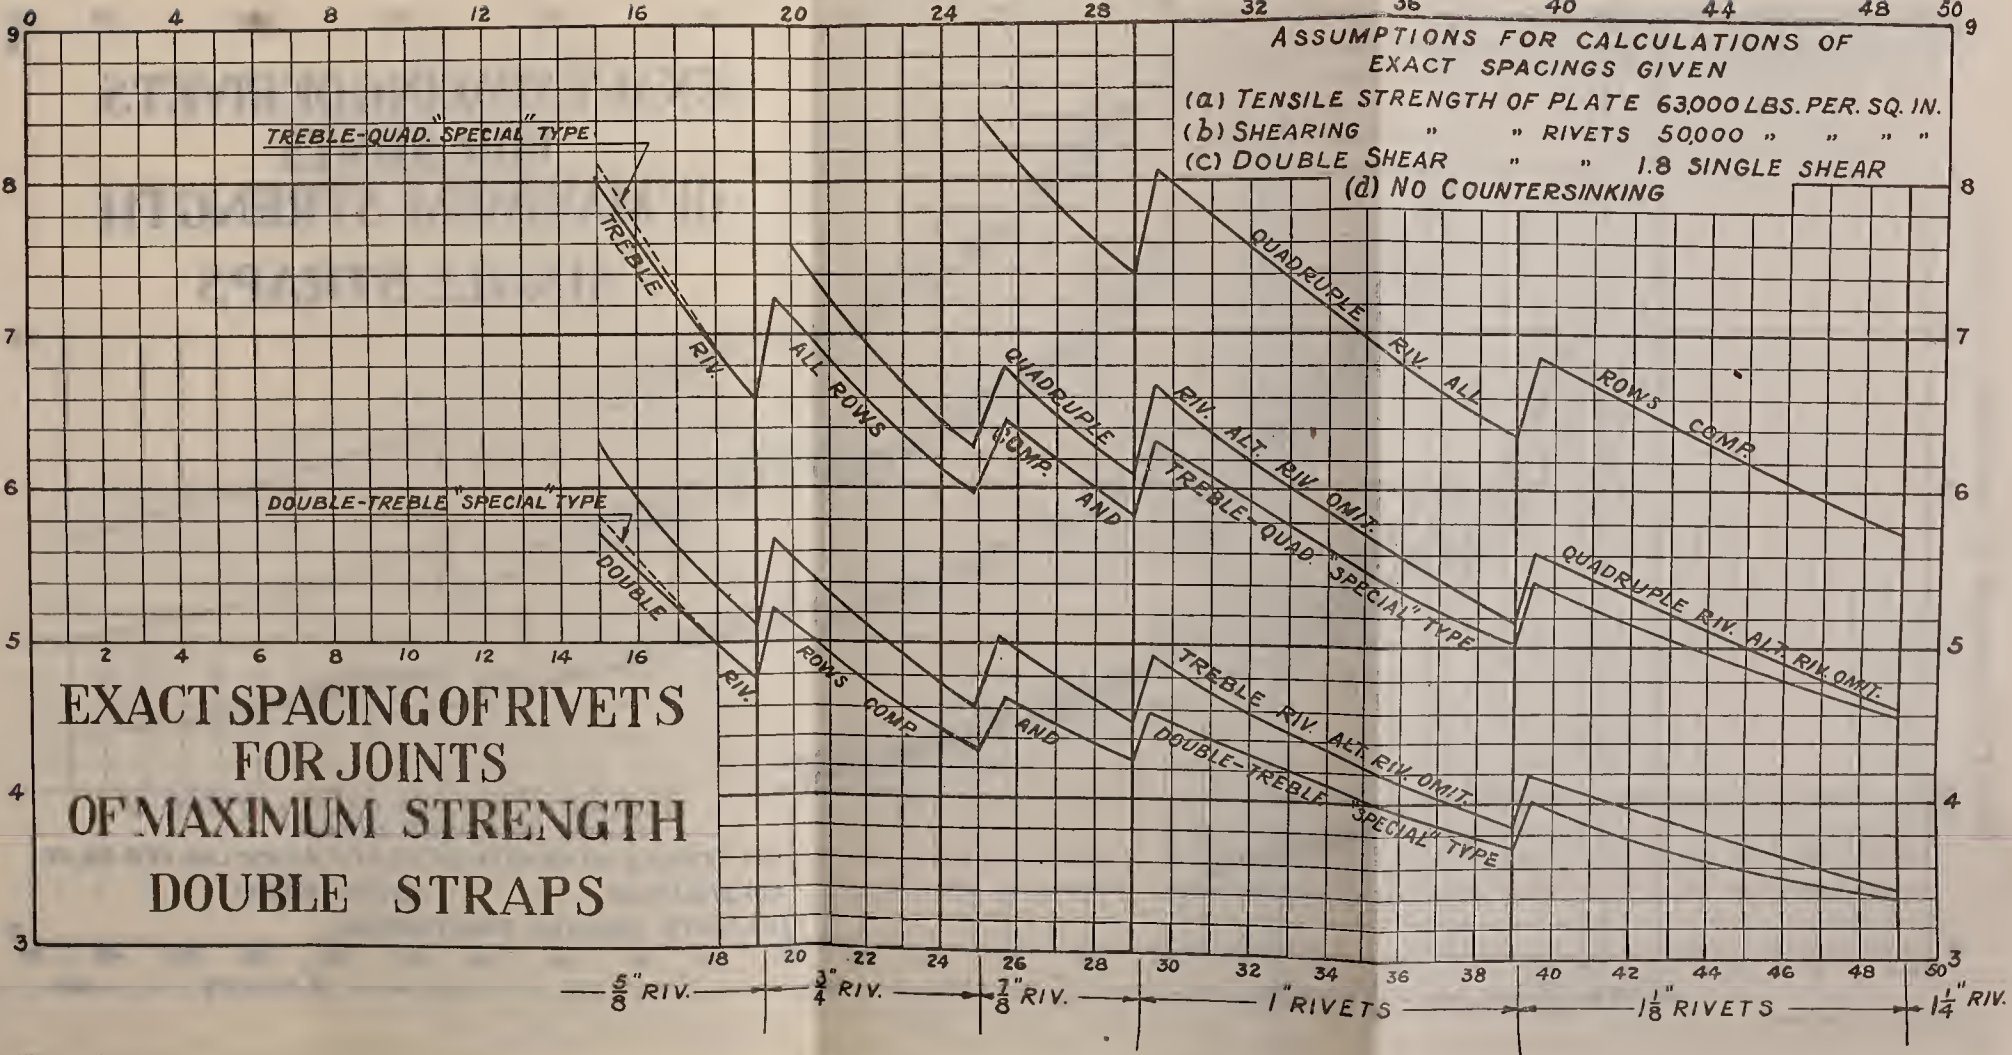 0 4 8 12 16 20 24 28 32 36 40 44 48 50
9 8 7 6 5 4 3
9 8 7 6 5 4 3
ASSUMPTIONS FOR CALCULATIONS OF
EXACT SPACINGS GIVEN
(a) TENSILE STRENGTH OF PLATE 63,000 LBS. PER. SQ. IN.
(b) SHEARING " " RIVETS 50,000 " " " "
(c) DOUBLE SHEAR " " 1.8 SINGLE SHEAR
(d) NO COUNTERSINKING
TREBLE-QUAD. "SPECIAL" TYPE
TREBLE RIV. ALL ROWS COMP. AND TREBLE-QUAD. "SPECIAL" TYPE
QUADRUPLE RIV. ALL ROWS COMP.
QUADRUPLE RIV. ALT. RIV. OMIT.
QUADRUPLE RIV. ALT. RIV. OMIT.
DOUBLE-TREBLE "SPECIAL" TYPE
DOUBLE RIV. ROWS COMP. AND DOUBLE-TREBLE "SPECIAL" TYPE
TREBLE RIV. ALT. RIV. OMIT.
2 4 6 8 10 12 14 16
EXACT SPACING OF RIVETS
FOR JOINTS
OF MAXIMUM STRENGTH
DOUBLE STRAPS
18 20 22 24 26 28 30 32 34 36 38 40 42 44 46 48 50
5/8" RIV. 3/4" RIV. 7/8" RIV. 1" RIVETS 1 1/8" RIVETS 1 1/4" RIV.